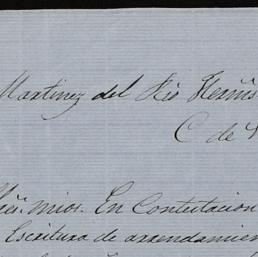 Martinez del Rio Hermˢ
C de
mios. En Contestacion
Escritura de arrendamien